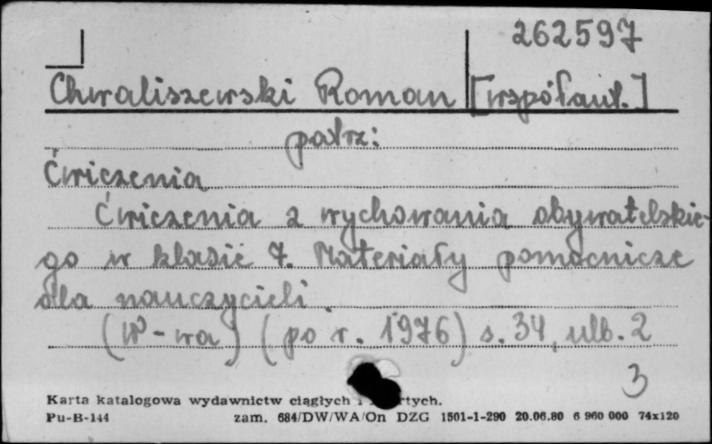 262597
Chwaliszewski Roman [współaut.]
patrz:
Ćwiczenia
Ćwiczenia z wychowania obywatelskie-
go w klasie 7. Materiały pomocnicze
dla nauczycieli.
(W-wa) (po r. 1976) s. 34, nlb. 2
3
Karta katalogowa wydawnictw ciągłych i
Pu-B-144 zam. 684/DW/WA/On DZG 1501-1-290 20.06.80 6 960 000 74x120